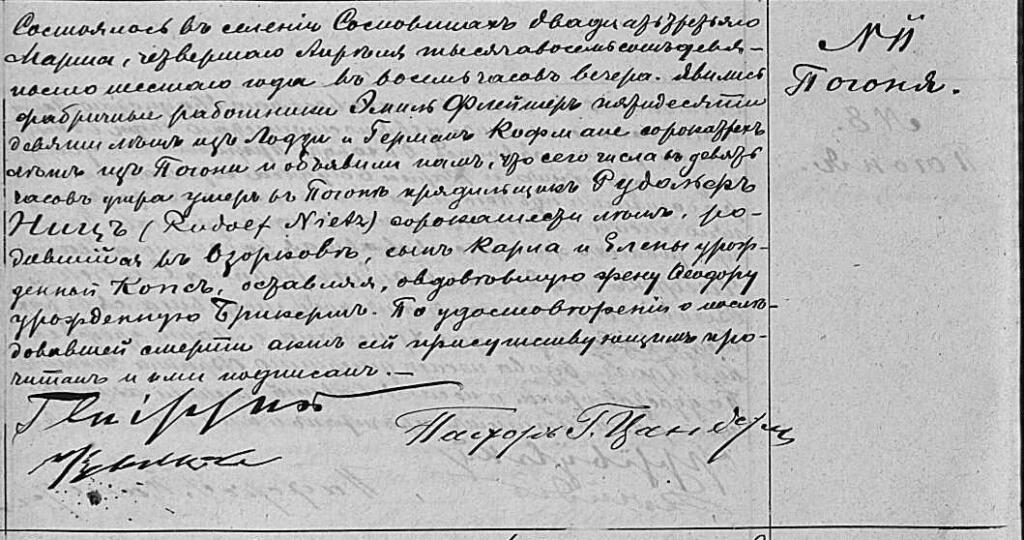 Состоялось въ селеніи Сосновицахъ двадцать третьяго
Марта, четвертаго Апрѣля тысяча восемьсотъ девя-
носто шестаго года въ восемь часовъ вечера. Явились
фабричные работники Эмиль Флейшеръ пятидесяти
девяти лѣтъ изъ Лодзи и Германъ Кофмане сорока трехъ
лѣтъ изъ Погони и объявили намъ, что сего числа въ девять
часовъ утра умеръ въ Погонѣ прядильщикъ Рудольфъ
Ницъ (Rudolf Nietz) сорока шести лѣтъ, ро-
дившійся въ Озорковѣ, сынъ Карла и Елены урож-
денной Копсъ, оставляя, овдовѣвшую жену Ѳеодору
урожденную Брикертъ. По удостовѣреніи о послѣ-
довавшей смерти актъ сей присутствующимъ про-
читанъ и ими подписанъ. —
Пасторъ Г. Цандеръ
№ 11
Погоня.